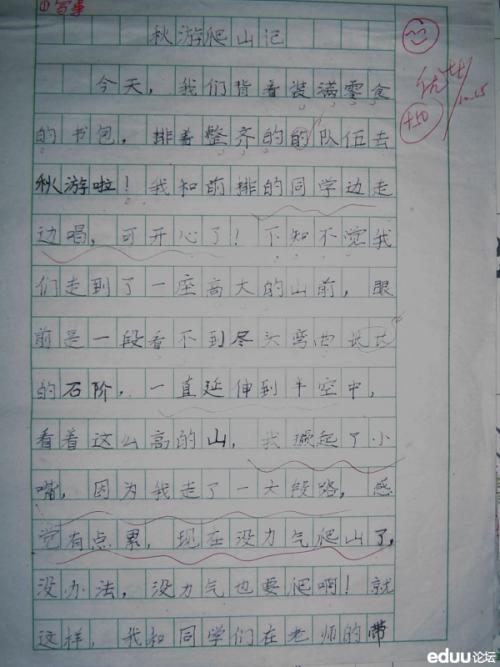 ①写事
秋游爬山记
优++
10.25
+50
今天，我们背着装满零食
的书包，排着整齐的的队伍去
秋游啦！我和前排的同学边走
边唱，可开心了！不知不觉我
们走到了一座高大的山前，眼
前是一段看不到尽头弯曲
的石阶，一直延伸到半空中，
看着这么高的山，我撅起了小
嘴，因为我走了一大段路，感
觉有点累，现在没力气爬山了，
没办法，没力气也要爬啊！就
这样，我和同学们在老师的带
eduu论坛